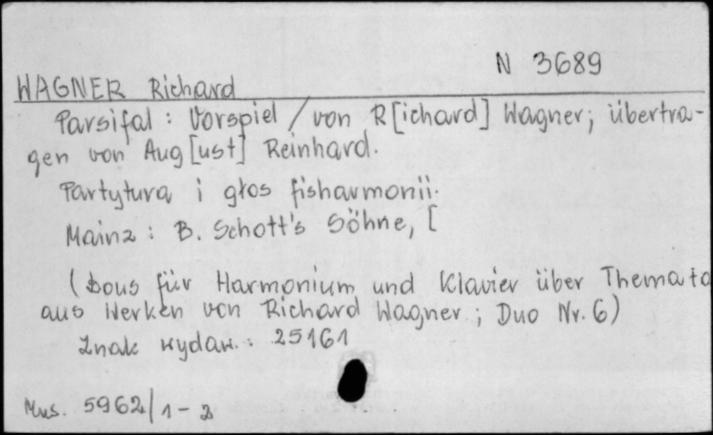 N 3689
WAGNER Richard
Parsifal : Vorspiel / von R[ichard] Wagner; übertra-
gen von Aug[ust] Reinhard.
Partytura i głos fisharmonii.
Mainz : B. Schott's Söhne, [
(Dous für Harmonium und Klavier über Themata
aus Werken von Richard Wagner ; Duo Nr. 6)
Znak wydaw. : 25161
Mus. 5962/1-2